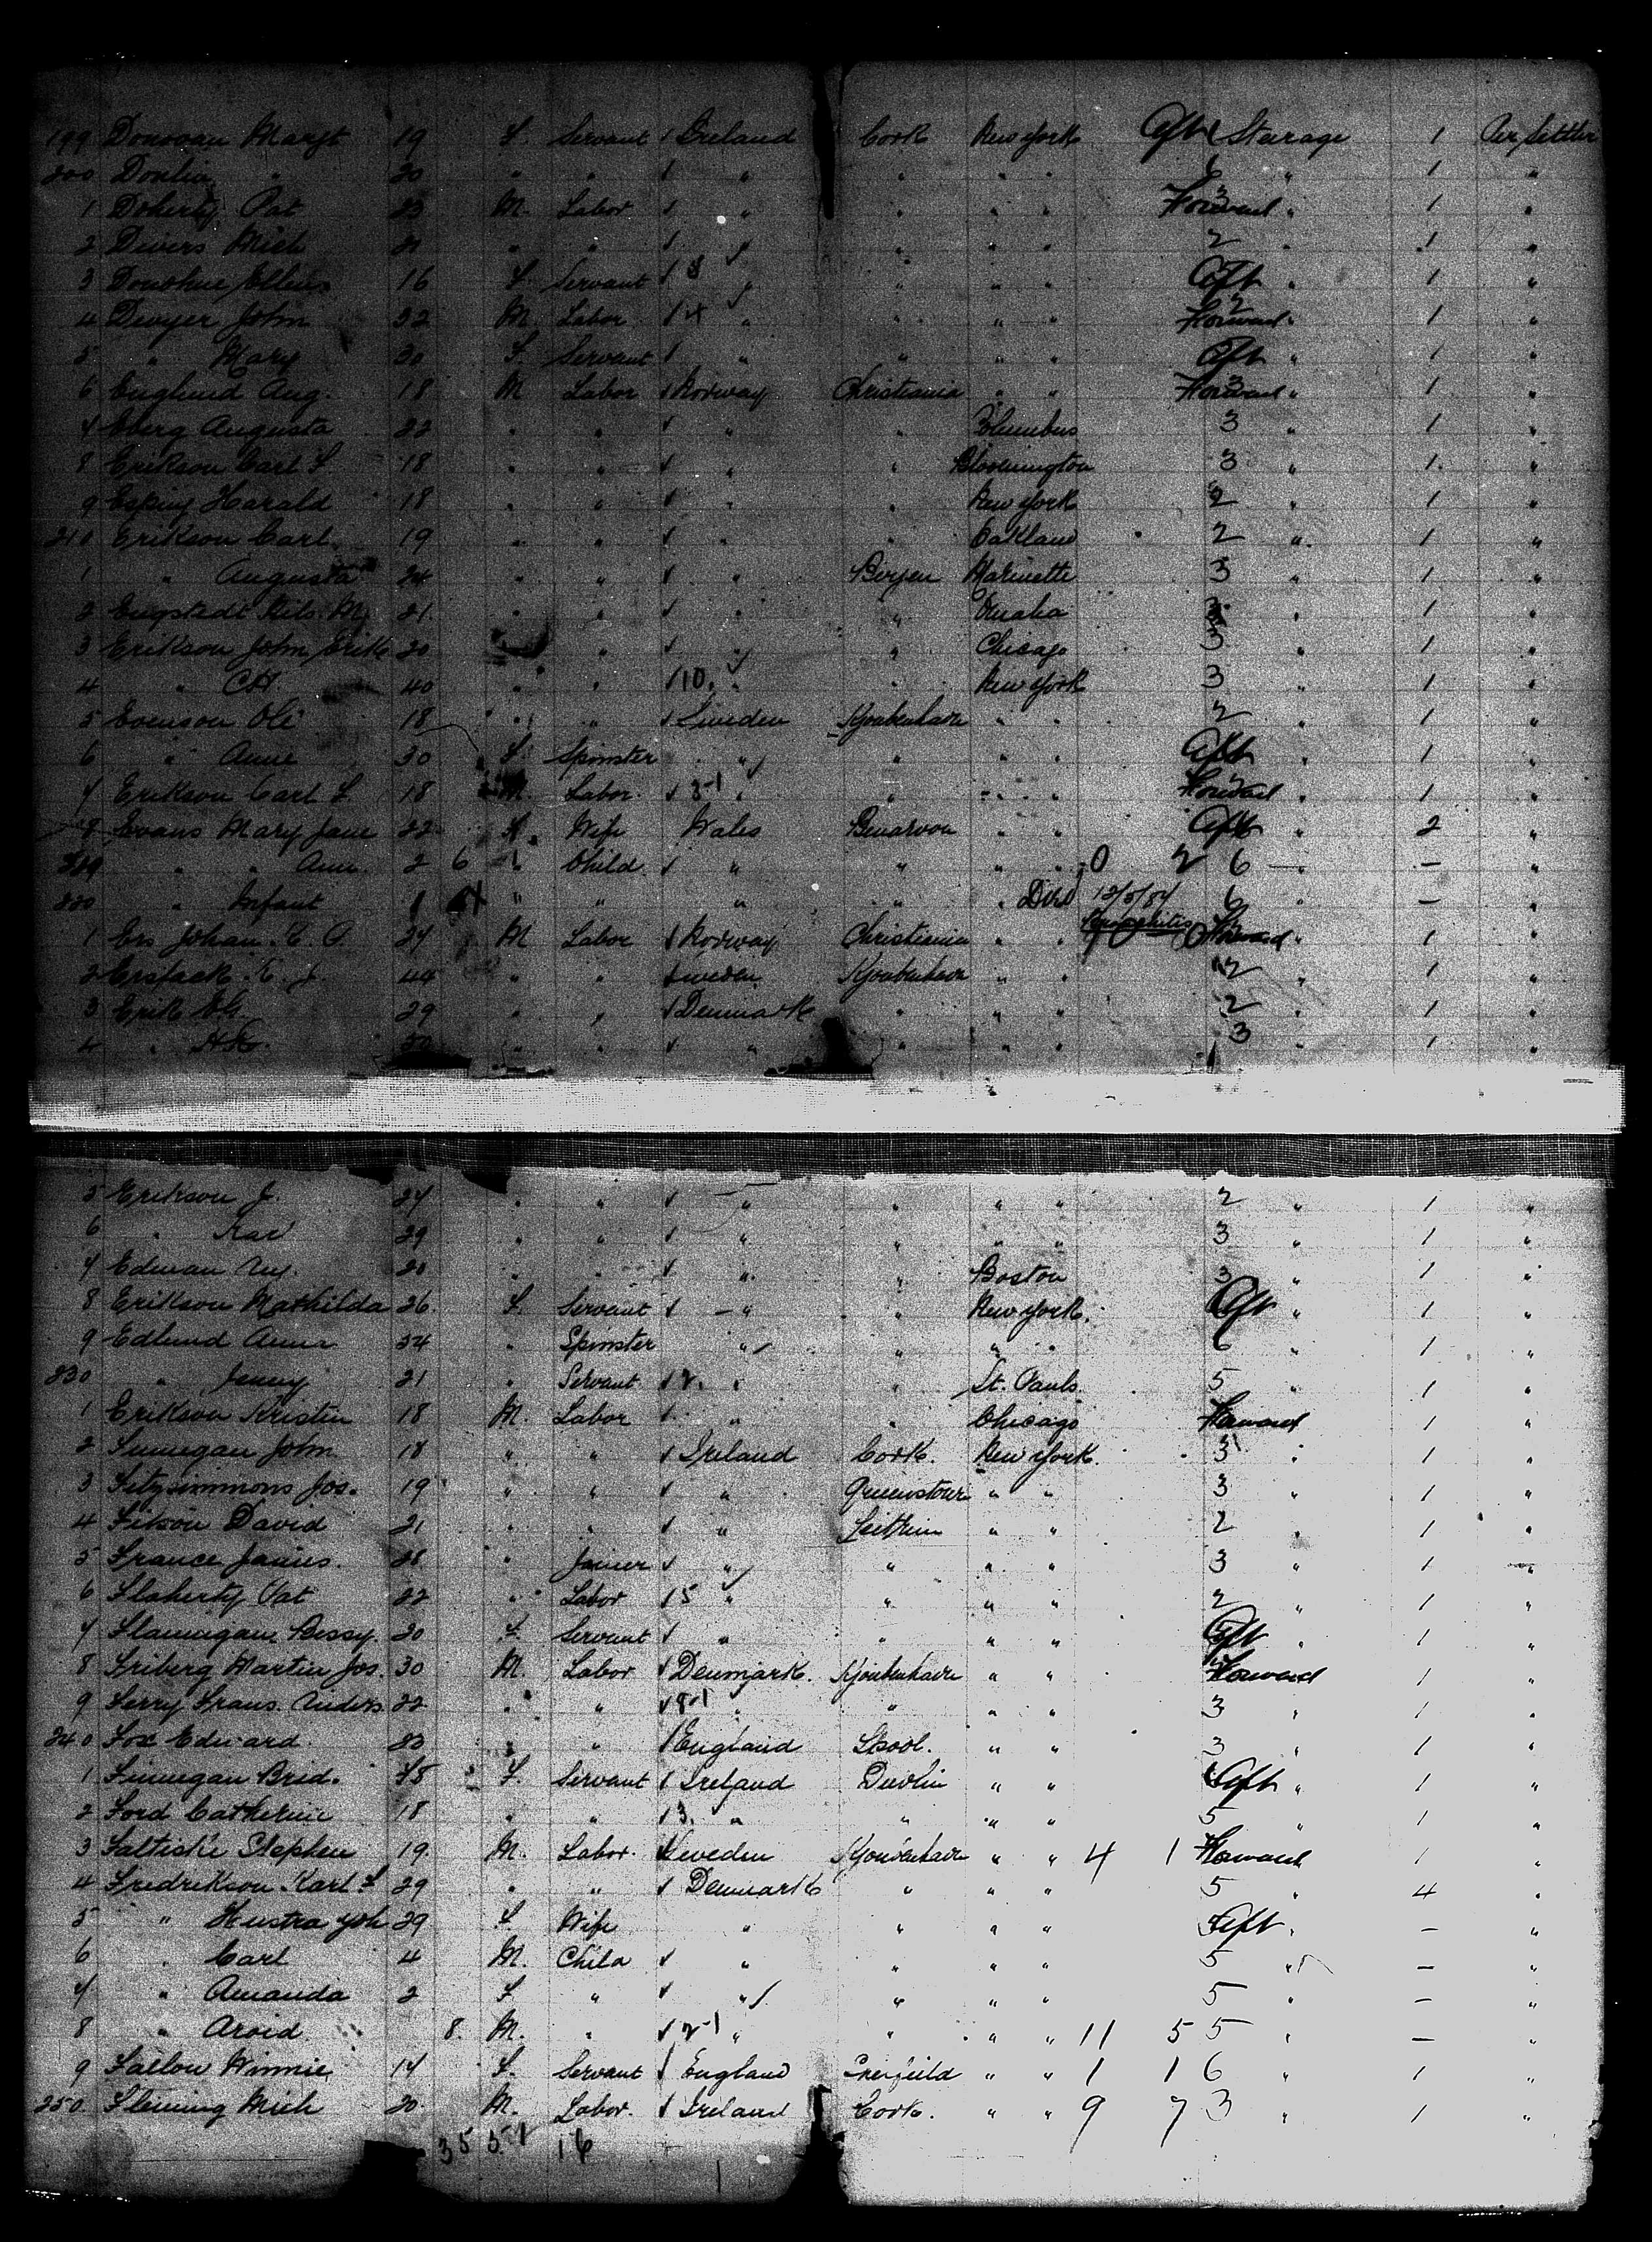 199 Donovan Margt 19 F. Servant Ireland Cork New York Aft Steerage 1 Per. Settler
200 Donlin " 20 " " " " " " 6 " 1 "
1 Doherty Pat 23 M. Labor " " " " 3 Forward " 1 "
2 Divers Mich 21 " " " " " " 2 " 1 "
3 Donohue Ellen 16 F. Servant 8 " " " " Aft " 1 "
4 Dwyer John 32 M. Labor 4 " " " " 2 Forward " 1 "
5 " Mary 30 F. Servant " " " " Aft " 1 "
6 Englund Aug. 18 M Labor Norway Christiania " " 3 Forward " 1 "
7 Eberg Augusta 22 " " " " Columbus 3 " 1 "
8 Erikson Carl F 18 " " " " Bloomington 3 " 1 "
9 Harald 18 " " " " New York 2 " 1 "
210 Erikson Carl 19 " " " " Oakland 2 " 1 "
1 " Augusta 24 " " " Bergen Marinette 3 " 1 "
2 Engstedt Nils. M. 21 " " " " Omaha 3 " 1 "
3 Erikson John Erik 20 " " " " Chicago 3 " 1 "
4 " 40 " " 10. " " New York 3 " 1 "
5 Evenson Ole 18 " " Sweden Kjoubenhavn " " 2 " 1 "
6 " Anne 30 F. Spinster " " " " Aft " 1 "
7 Erikson Carl F 18 M. Labor 3-1 " " " " 2 Forward " 1 "
8 Evans Mary Jane 22 F. Wife Wales " " Aft " 2 "
219 " " Ann 2 6 " Child " " " " 0 2 6 — — "
220 " Infant 1 " " " " " Died 12/5/84 6 — "
1 Johan. C. A. 24 M Labor Norway Christiania " " Forward " 1 "
2 44 " " Sweden Kjoubenhavn " " 2 " 1 "
3 Erik 29 " " Denmark " " " 2 " 1 "
4 " " " " " " " 3 " 1 "
5 Erikson J. 24 " " " " " " 2 " 1 "
6 " 29 " " " " " " 3 " 1 "
7 Edman 20 " " " " Boston 3 " 1 "
8 Erikson Mathilda 26 F. Servant " " New York. Aft " 1 "
9 Edlund Anna 34 " Spinster " " " " 6 " 1 "
230 " Jenny 21 " Servant " " St. Pauls. 5 " 1 "
1 Erikson Kristin 18 M. Labor " " Chicago Forward 1 "
2 Finnegan John 18 " " Ireland Cork. New York. 3 " 1 "
3 Fitzsimmons Jos. 19 " " " Queenstown " " 3 " 1 "
4 Filson David 21 " " " Leitrim " " 2 " 1 "
5 France James. 28 " Joiner " " " " 3 " 1 "
6 Flaherty Pat 22 " Labor 5 " " " " 2 " 1 "
7 Flannigan Bessy. 20 F. Servant " " " " Aft " 1 "
8 Friberg Martin Jos. 30 M. Labor Denmark. Kjoubenhavn " " Forward 1 "
9 Ferry Frans. Anders 22 " " 8-1 " " " " 3 " 1 "
240 Fox Edward. 23 " " England Lpool. " " 3 " 1 "
1 Finnegan Brid. 18 F. Servant Ireland Dublin " " Aft " 1 "
2 Ford Catherine 18 " " 3. " " " " 5 " 1 "
3 Stephen 19 M. Labor. Sweden Kjoubenhavn " " 4 1 Forward 1 "
4 Fredrikson Karl F 29 " " Denmark " " " 5 " 4 "
5 " 29 F. Wife " " " " Aft " — "
6 " Carl 4 M. Child " " " " 5 " — "
7 " Amanda 2 F " " " " " 5 " — "
8 " Arvid 8 M. " 2-1 " " " " 11 5 5 " — "
9 Fallon Winnie 14 F. Servant England " " 1 1 6 " 1 "
250 Fleming Mich 20 M. Labor. Ireland Cork. " " 9 7 3 " 1 "
35 5-1 16